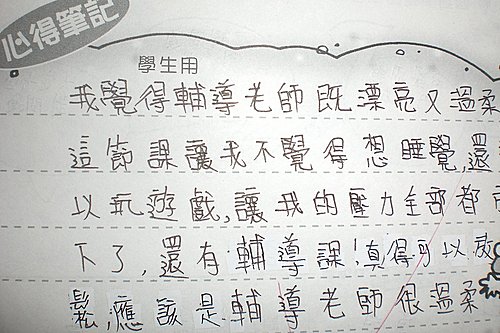 心得筆記
學生用
我覺得輔導老師既漂亮又溫柔
這節課讓我不覺得想睡覺,還
以玩遊戲,讓我的壓力全部都
下了,還有輔導課!真得可以放
鬆,應該是輔導老師很溫柔